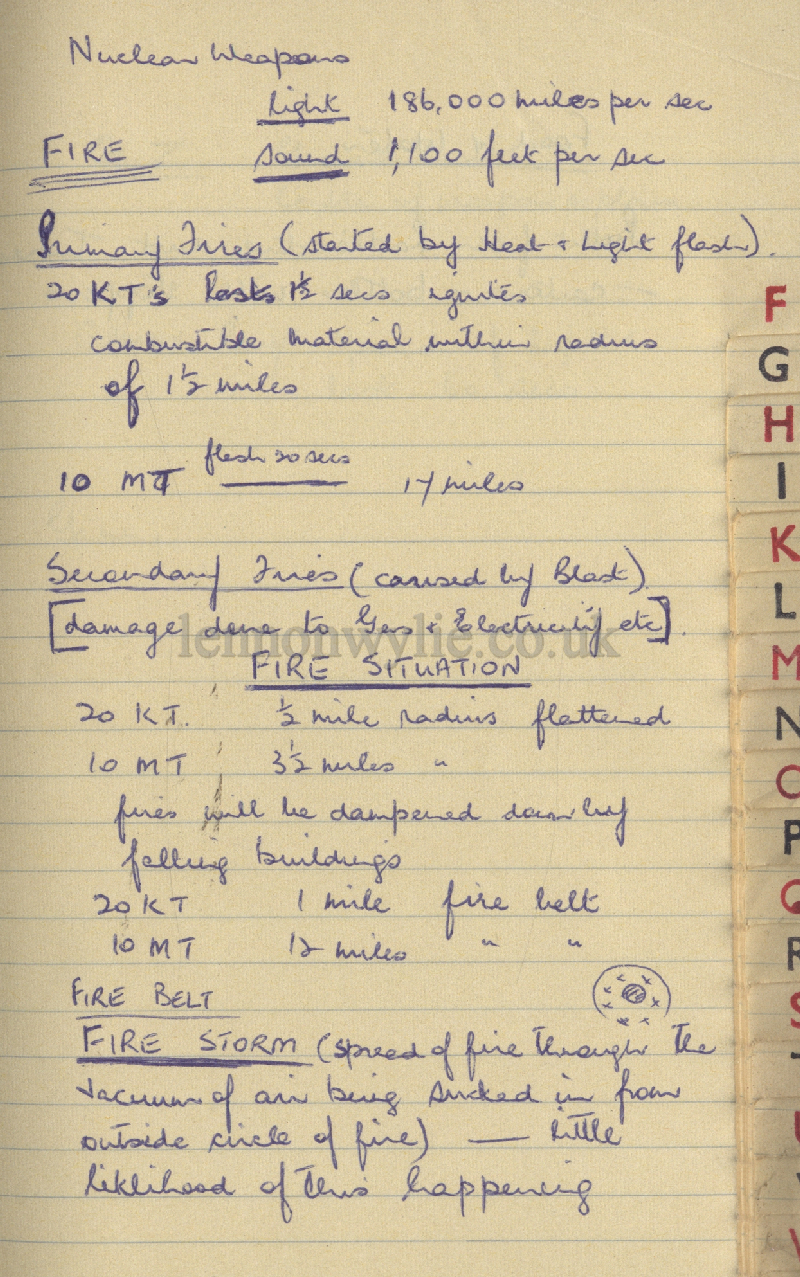 Nuclear Weapons
Light 186,000 miles per sec
FIRE Sound 1,100 feet per sec
Primary Fires (started by Heat + Light flash).
20 KT's lasts 1½ secs ignites
combustible material within radius
of 1½ miles
10 MT flash 20 secs 17 miles
Secondary Fires (caused by Blast).
[damage done to Gas + Electricity etc].
lennonwylie.co.uk
FIRE SITUATION
20 KT. ½ mile radius flattened
10 MT 3½ miles "
fires will be dampened down by
falling buildings
20 KT 1 mile fire belt
10 MT 12 miles " "
FIRE BELT
FIRE STORM (spread of fire through the
vacuum of air being sucked in from
outside circle of fire) — little
liklihood of this happening
F
G
H
I
K
L
M
N
O
P
Q
R
S
T
U
V
W